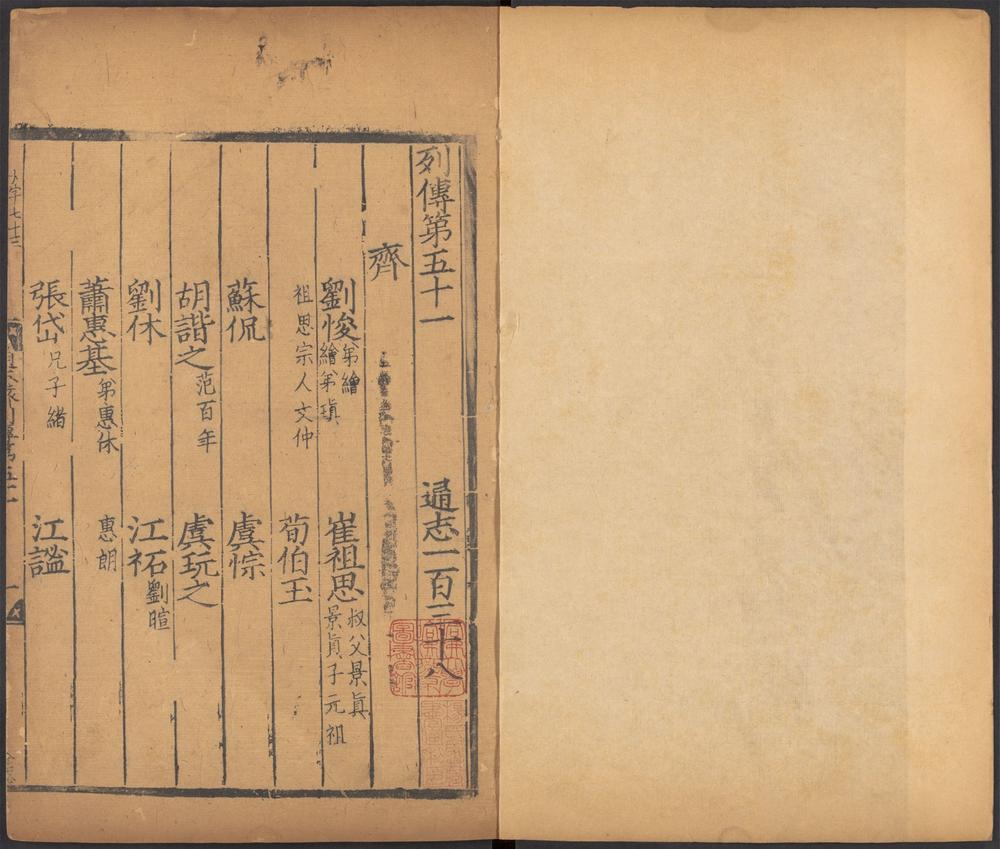 列傳第五十一 通志一百三十八
齊
劉悛 弟繪 繪弟瑱 崔祖思 叔父景眞 景眞子元祖
祖思宗人文仲 荀伯玉
蘇侃 虞悰
胡諧之 范百年 虞玩之
劉休 江祏 劉暄
蕭惠基 弟惠休 惠朗
張岱 兄子緒 江謐